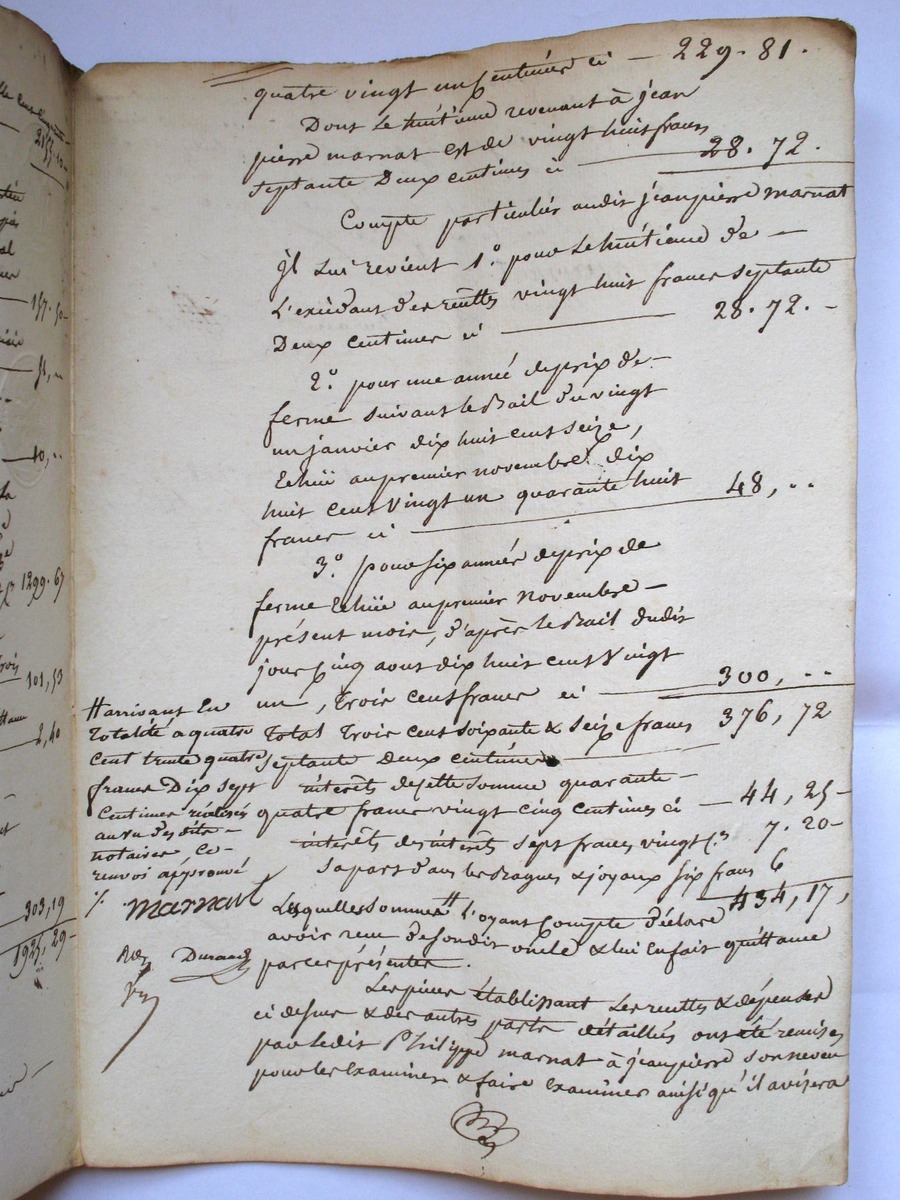 quatre vingt un centimes ci — 229. 81.
Dont le huitième revenant à jean
pierre marnat est de vingt huit francs
septante Deux centimes ci — 28. 72.
Compte particulier audit jeanpierre marnat
jl Lui revient 1.° pour le huitieme de —
L'exédant des recettes vingt huit francs septante
Deux centimes ci — 28. 72. —
2.° pour une année de prix de —
ferme suivant le Bail du vingt
un janvier dix huit cent seize,
Echüe au premier novembre dix
huit cent vingt un quarante huit
francs ci — 48, ..
3.° pour six années de prix de
ferme Echüe au premier novembre —
présent mois, d'après le Bail dudit
jour cinq aout dix huit cent vingt
un, Trois cent francs ci — 300, ..
Total Trois cent soixante & seize francs 376, 72
septante deux centimes —
interêts de cette somme quarante —
quatre francs vingt cinq centimes ci — 44, 25 —
interêts des interêts sept francs vingt c.s 7. 20 —
sa part dans les bagues & joyaux six francs 6
434, 17,
Lesquelles sommes # L'oyant Compte déclare
avoir reçu de son dit oncle & lui En fait quittance
par ces présentes.
Les pieces établissant les recettes & dépenses
ci dessus & des autres parts détaillés ont été remises
par ledit Philippe marnat à jeanpierre son neveu
pour les Examiner & faire Examiner ainsi qu'il avisera
# arrivant En
totalité a quatre
cent trente quatre
francs Dix sept
Centimes réalisés
au vu des dits —
notaires, Ce
renvoi approuvé
marnat
Durand
157. 50 —
10, ..
1299. 67
101, 53
2, 40
303, 19
1925, 29 —